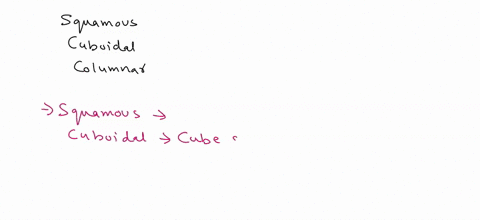 Squamous
Cuboidal
Columnar
→ Squamous →
Cuboidal → Cube